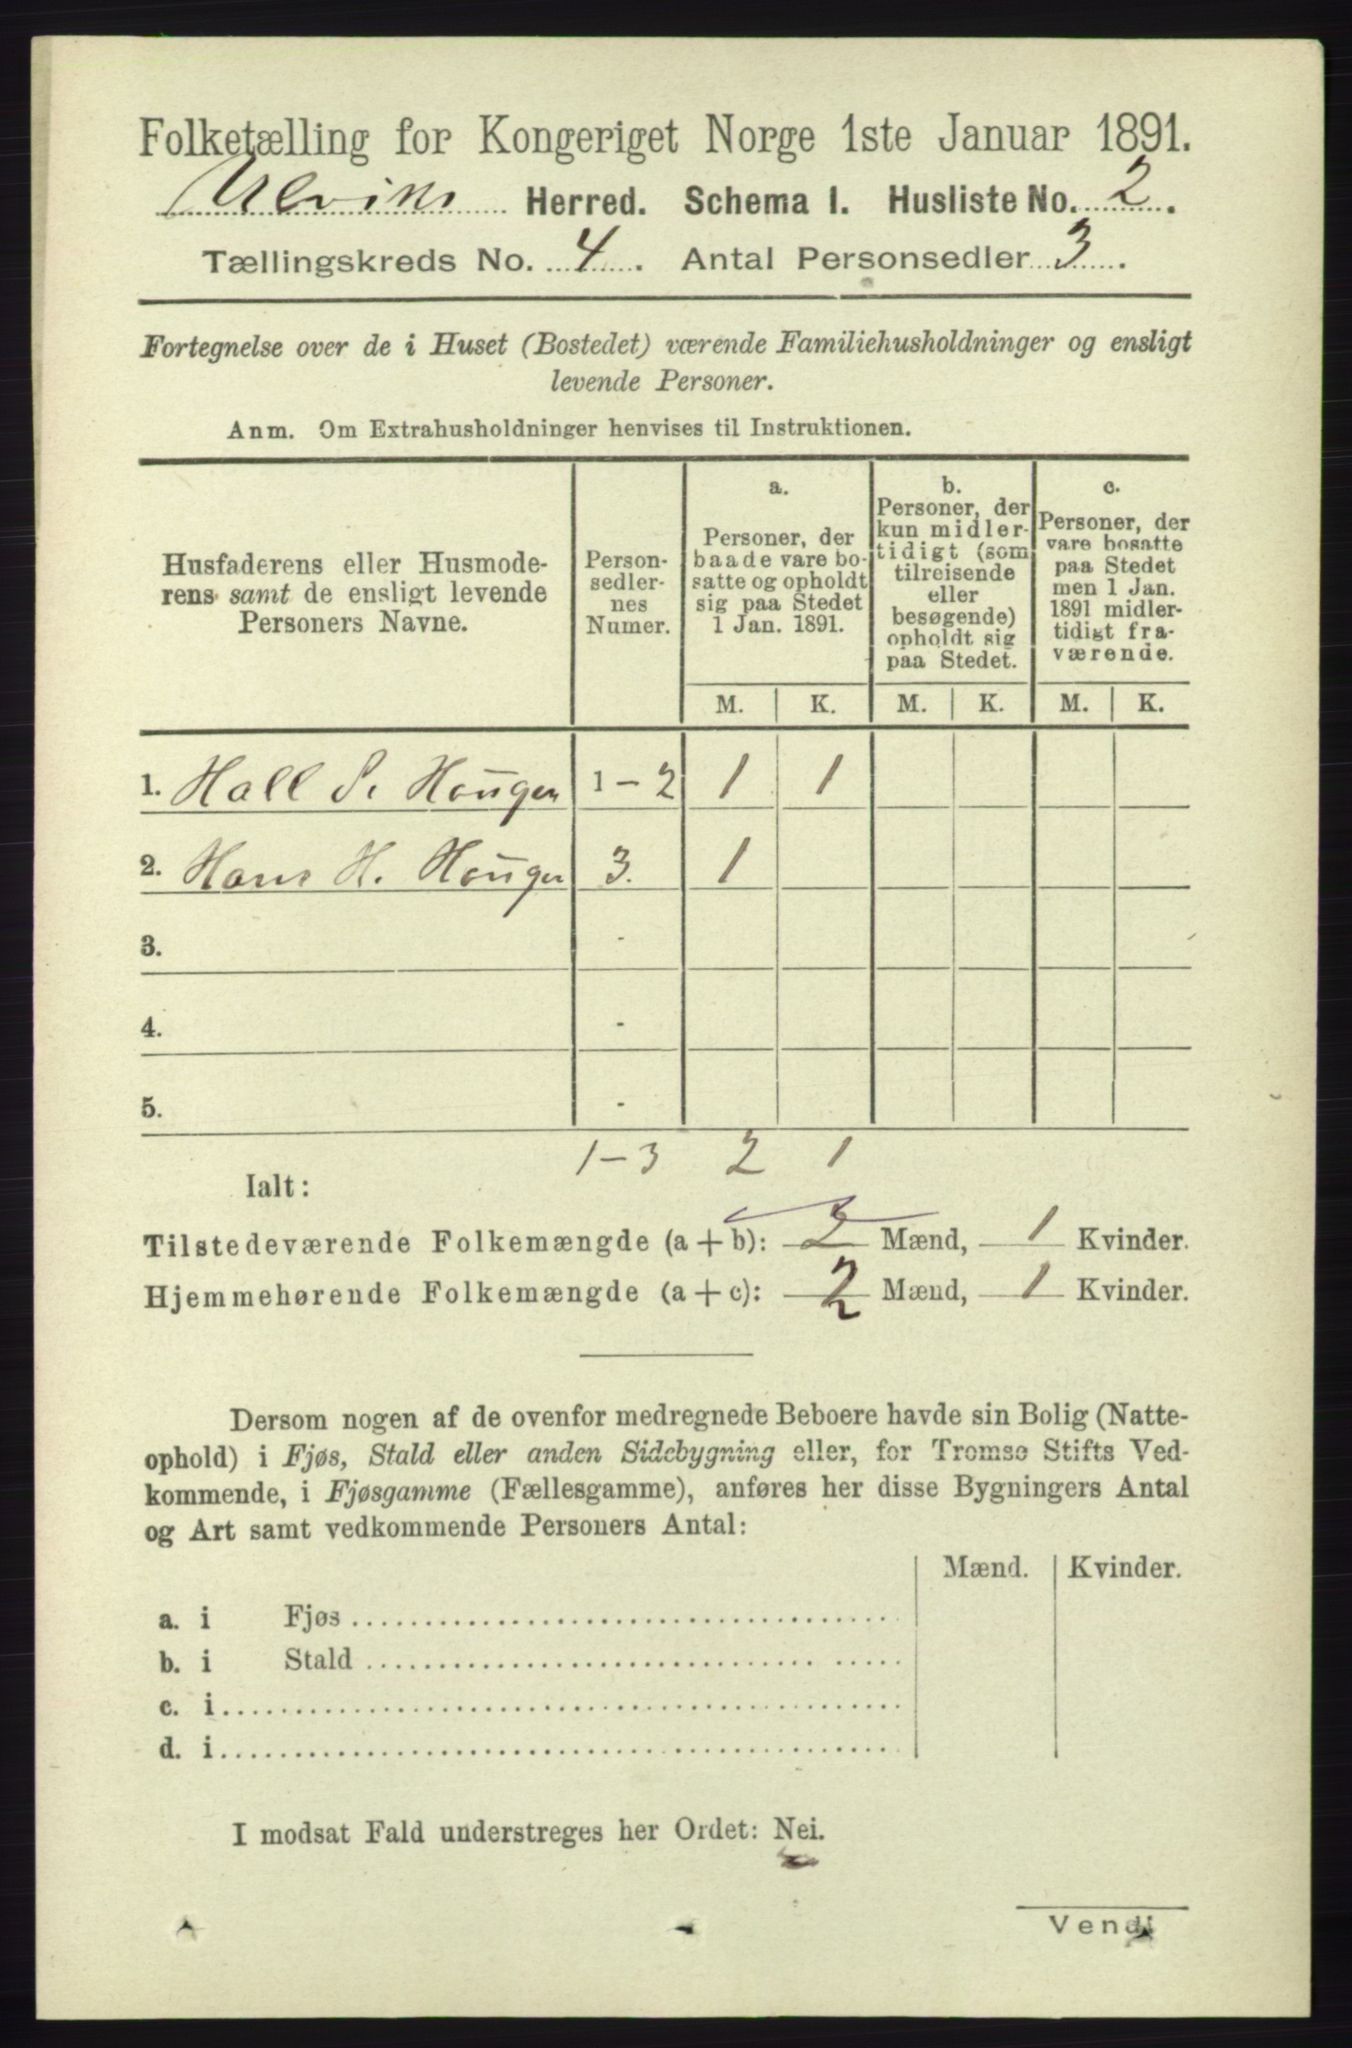 Folketælling for Kongeriget Norge 1ste Januar 1891.
Ulvik Herred. Schema I. Husliste No. 2.
Tællingskreds No. 4. Antal Personsedler 3.
Fortegnelse over de i Huset (Bostedet) værende Familiehusholdninger og ensligt
levende Personer.
Anm. Om Extrahusholdninger henvises til Instruktionen.
Husfaderens eller Husmode-
rens samt de ensligt levende
Personers Navne.
Person-
sedler-
nes
Numer.
a.
Personer, der
baade vare bo-
satte og opholdt
sig paa Stedet
1 Jan. 1891.
b.
Personer, der
kun midler-
tidigt (som
tilreisende
eller
besøgende)
opholdt sig
paa Stedet.
c.
Personer, der
vare bosatte
paa Stedet
men 1 Jan.
1891 midler-
tidigt fra-
værende.
M. K. M. K. M. K.
1. Hall S. Hougen 1 - 2 1 1
2. Hans H. Hougen 3. 1
3. -
4. -
5. -
1-3 2 1
Ialt:
Tilstedeværende Folkemængde (a + b): 2 Mænd, 1 Kvinder.
Hjemmehørende Folkemængde (a + c): 2 Mænd, 1 Kvinder.
Dersom nogen af de ovenfor medregnede Beboere havde sin Bolig (Natte-
ophold) i Fjøs, Stald eller anden Sidebygning eller, for Tromsø Stifts Ved-
kommende, i Fjøsgamme (Fællesgamme), anføres her disse Bygningers Antal
og Art samt vedkommende Personers Antal:
Mænd. Kvinder.
a. i Fjøs
b. i Stald
c. i
d. i
I modsat Fald understreges her Ordet: Nei.
Vend!